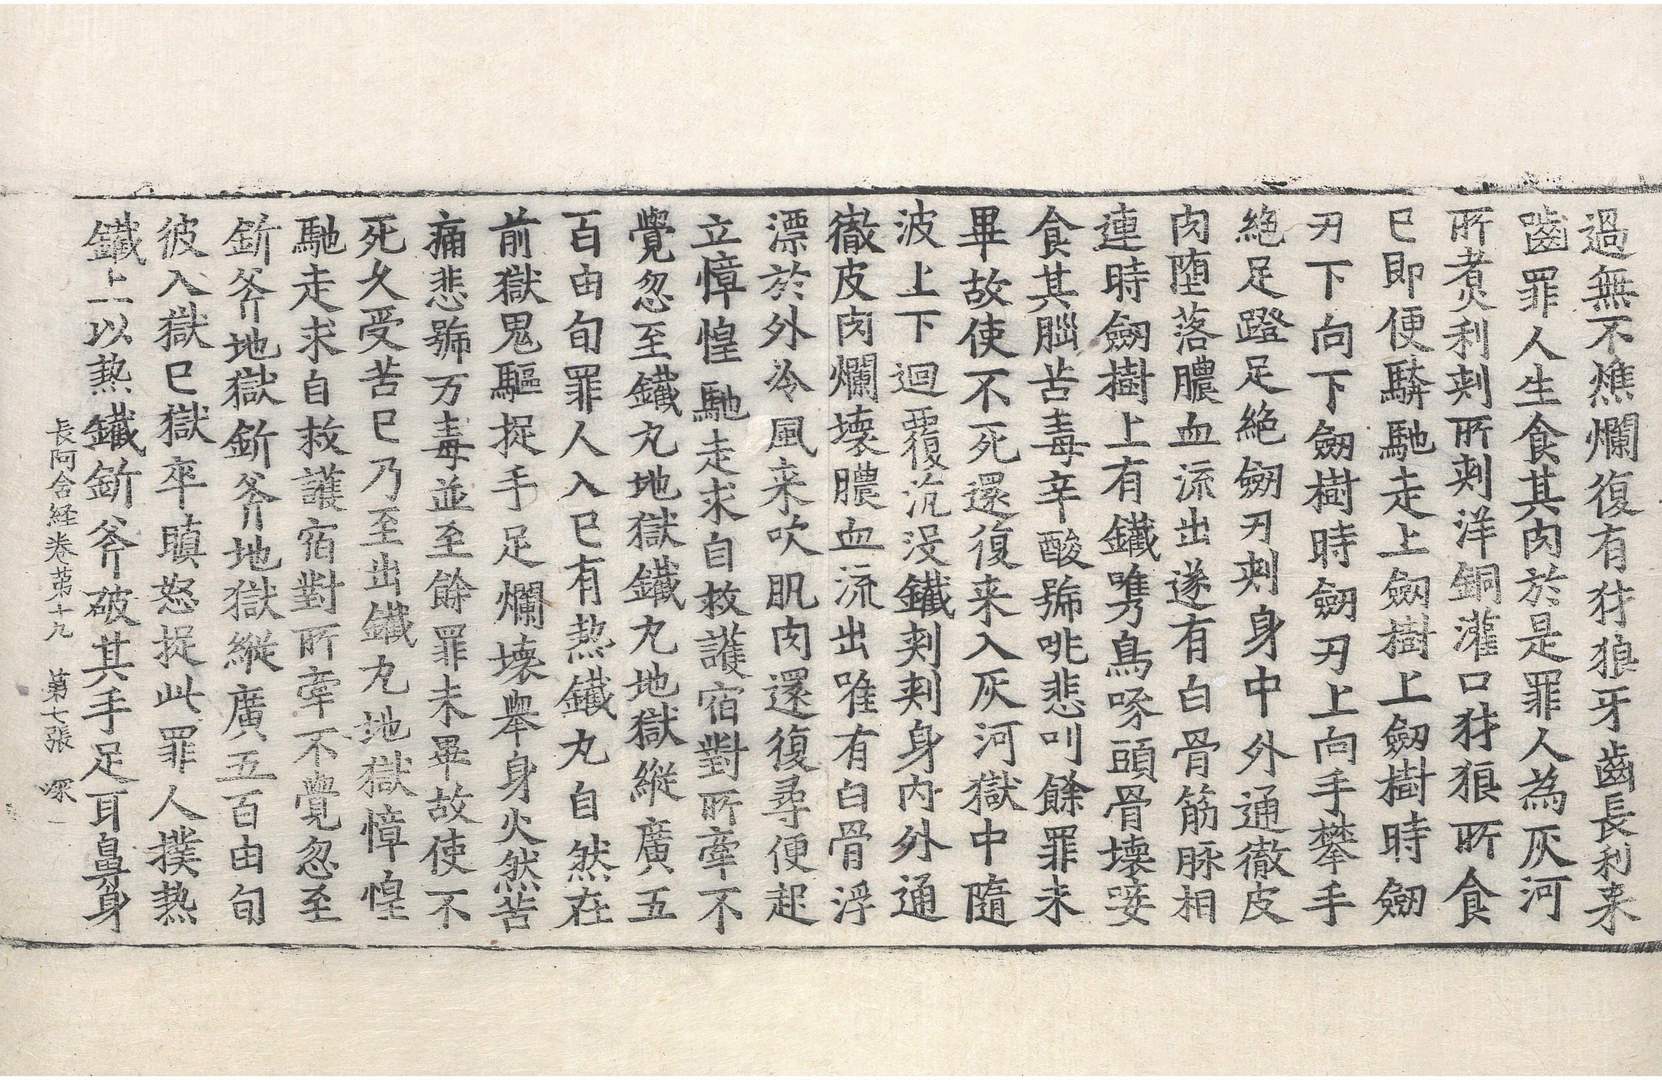 過無不燋爛復有犲狼牙齒長利来
齧罪人生食其肉於是罪人為灰河
所煮利刾所刾洋銅灌口犲狼所食
已即便騈馳走上劒樹上劒樹時劒
刃下向下劒樹時劒刃上向手攀手
絶足蹬足絶劒刃刾身中外通徹皮
肉墮落膿血流出遂有白骨筋脉相
連時劒樹上有鐵嘴鳥啄頭骨壞唼
食其腦苦毒辛酸號咷悲叫餘罪未
畢故使不死還復来入灰河獄中隨
波上下迴覆沉没鐵刾刾身内外通
徹皮肉爛壞膿血流出唯有白骨浮
漂於外冷風来吹肌肉還復尋便起
立慞惶馳走求自救護宿對所牽不
覺忽至鐵丸地獄鐵丸地獄縱廣五
百由旬罪人入已有熱鐵丸自然在
前獄鬼驅捉手足爛壞舉身火然苦
痛悲號万毒並至餘罪未畢故使不
死久受苦已乃至出鐵丸地獄慞惶
馳走求自救護宿對所牽不覺忽至
釿斧地獄釿斧地獄縱廣五百由旬
彼入獄已獄卒瞋怒捉此罪人撲熱
鐵上以熱鐵釿斧破其手足耳鼻身
長阿含経卷第十九 第七張